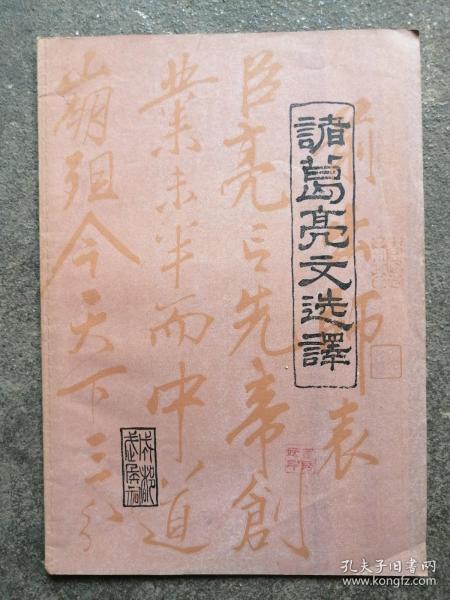 諸葛亮文选譯
前出師表
臣亮言先帝創
業未半而中道
崩殂今天下三分
成都
武侯祠
孔夫子旧书网
www.kongfz.com